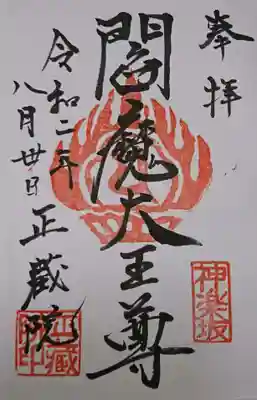 奉拝
神楽坂
閻魔大王尊
令和二年
八月卅日
正蔵院